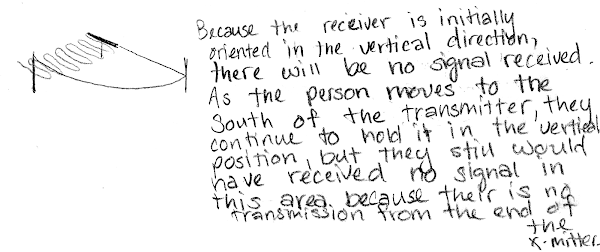 Because the receiver is initially
oriented in the vertical direction,
there will be no signal received.
As the person moves to the
South of the transmitter, they
continue to hold it in the vertical
position, but they still would
have received no signal in
this area because their is no
transmission from the end of
the
x-mitter.